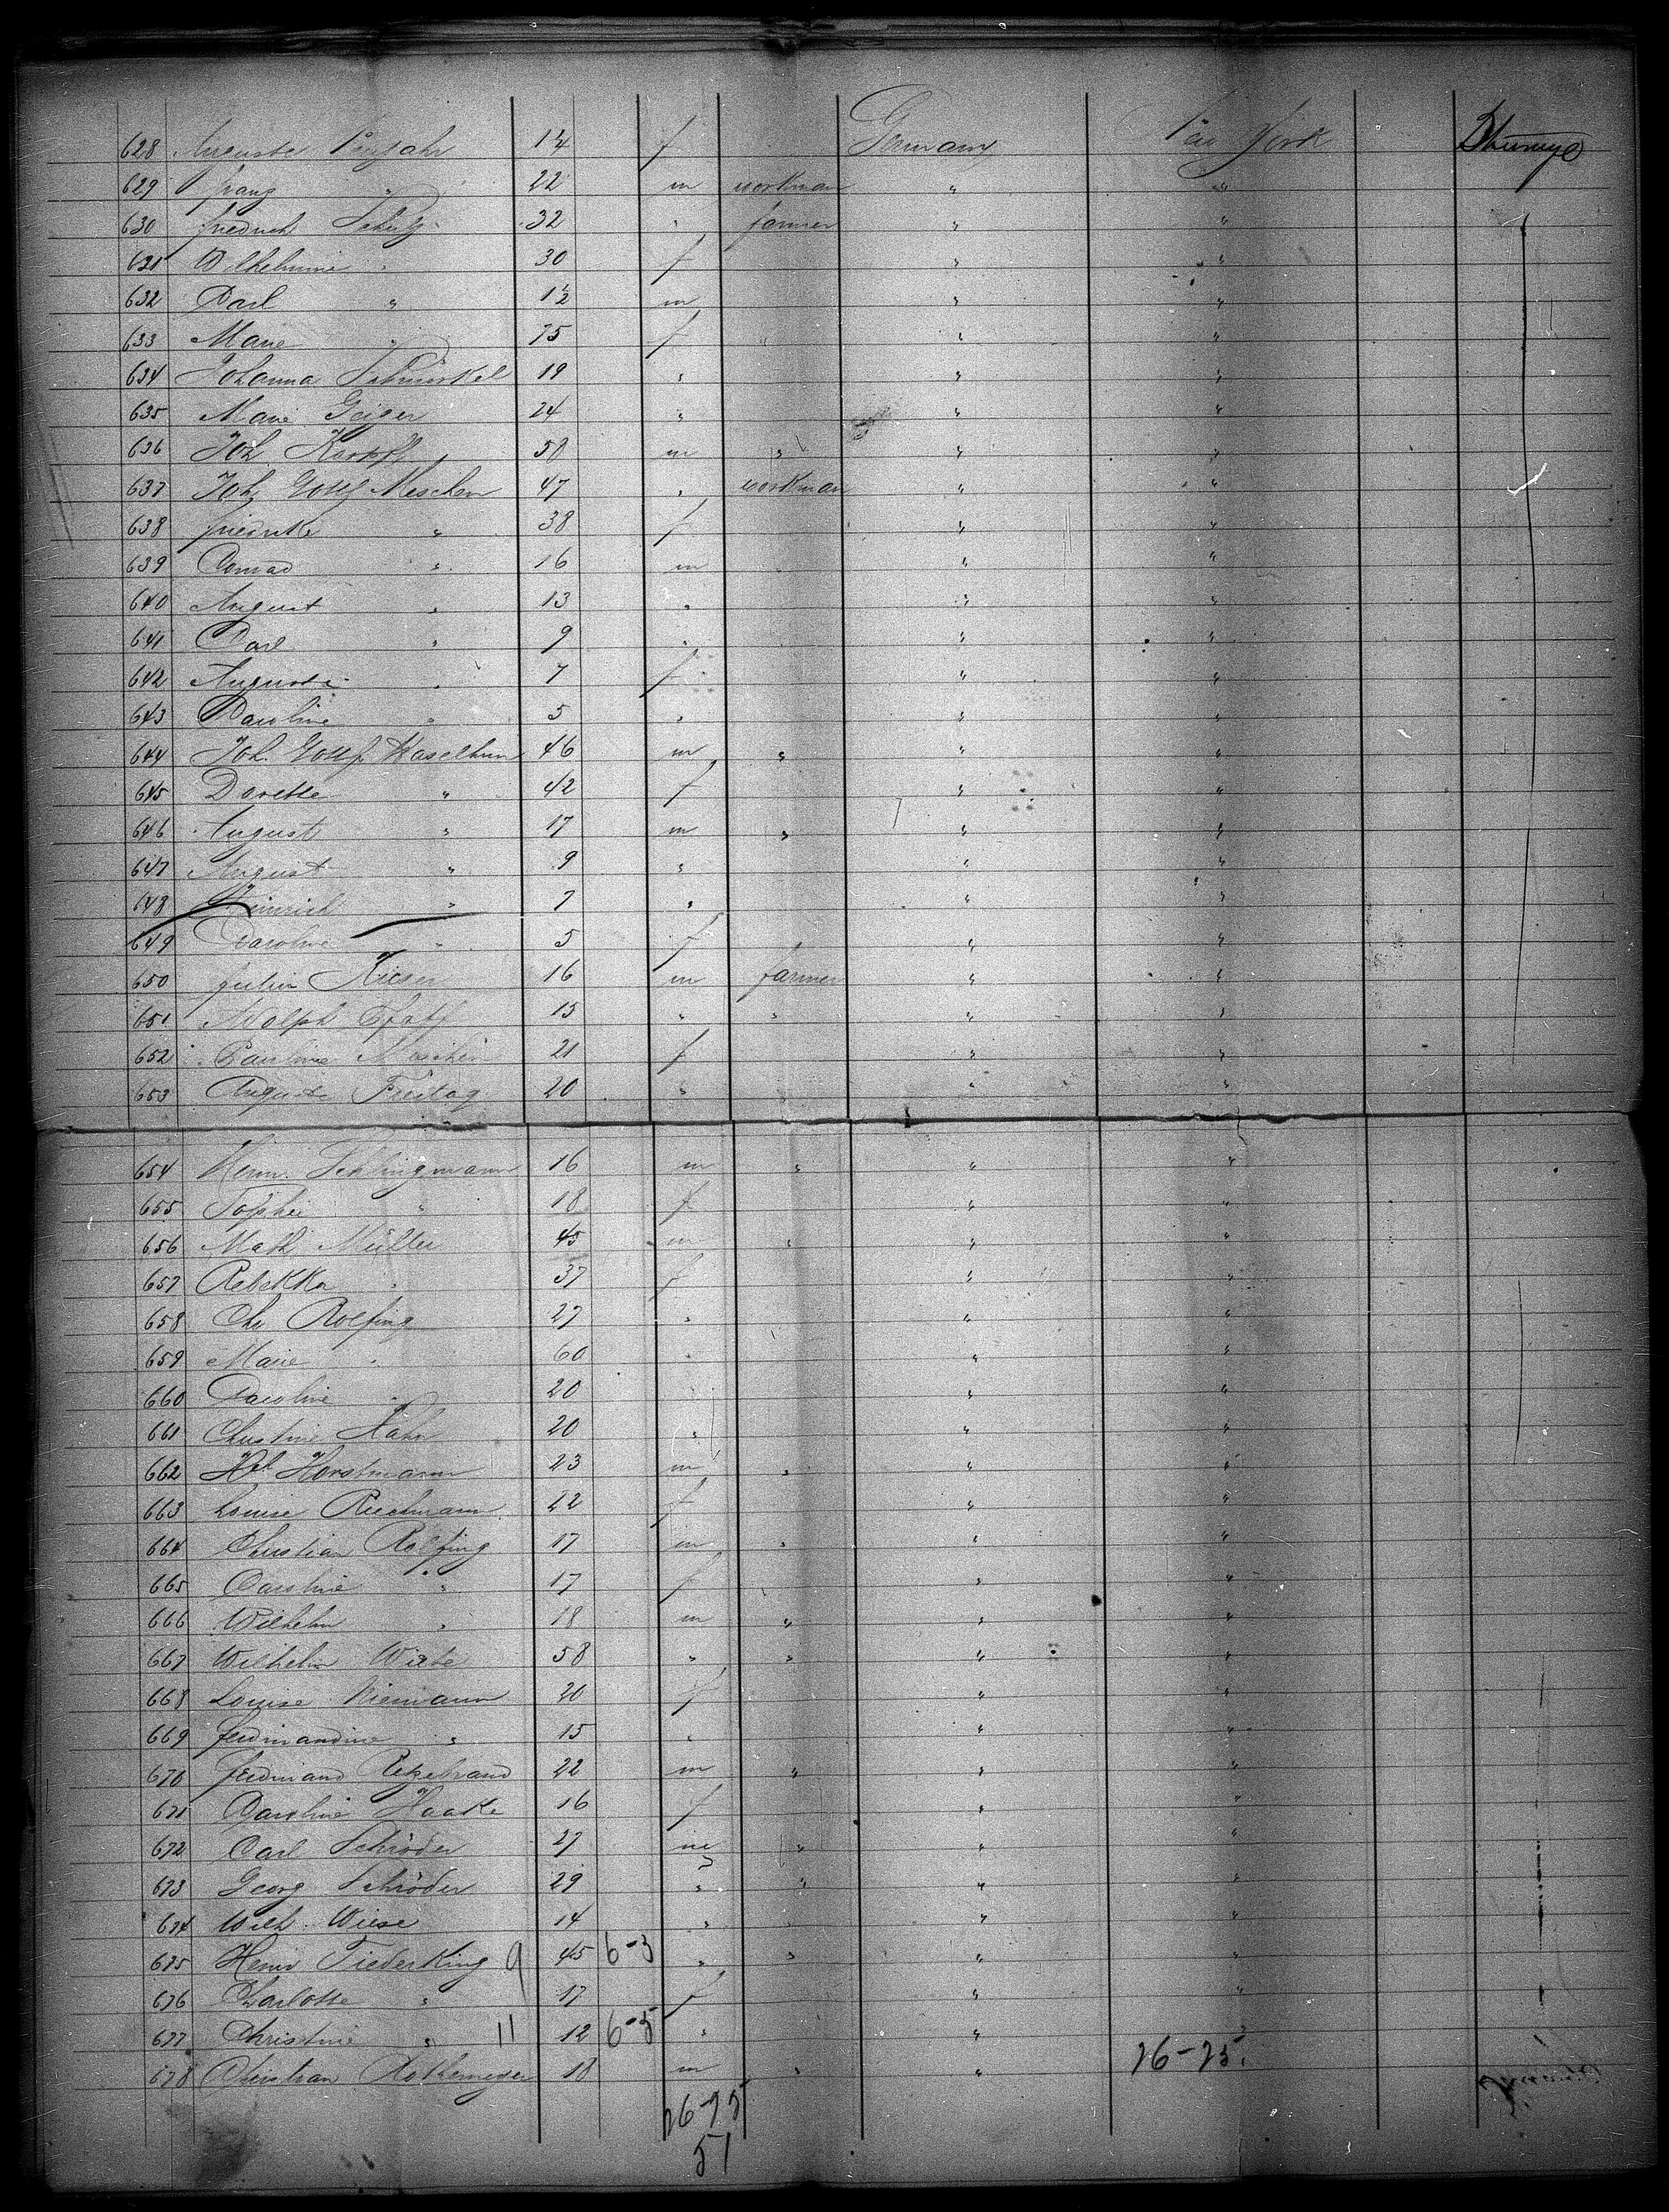 628 Auguste Neujahr 14 f Germany New York
629 Franz " 22 m workman " "
630 Friedrich Schulz 32 " farmer " "
631 Wilhelmine " 30 f " "
632 Carl " 1½ m " "
633 Marie " 75 f " "
634 Johanna 19 " " "
635 Marie Geiger 24 " " "
636 Joh 50 m " " "
637 Joh Meschen 47 " workman " "
638 Friedrike " 38 f " "
639 Conrad " 16 m " "
640 August " 13 " " "
641 Carl " 9 " " "
642 Auguste " 7 f " "
643 Caroline " 5 " " "
644 Joh. 46 m " " "
645 Dorette " 42 f " "
646 August " 17 m " " "
647 August " 9 " " "
648 Heinrich " 7 " " "
649 Caroline " 5 f " "
650 Kieser 16 m farmer " "
651 Adolph 15 " " " "
652 Pauline 21 f " "
653 Auguste Freitag 20 " " "
654 Henr. Schlingmann 16 m " " "
655 Sophie " 18 f " "
656 Math Müller 45 m " " "
657 Rebekka " 37 f " "
658 Chr Rolfing 27 " " "
659 Marie " 60 " " "
660 Caroline " 20 " " "
661 Christine Hahn 20 " " "
662 Horstmann 23 m " " "
663 Louise 22 f " "
664 Christian Rolfing 17 m " " "
665 Caroline " 17 f " "
666 Wilhelm " 18 m " " "
667 Wilhelm Witte 58 " " " "
668 Louise Niemann 20 f " "
669 Ferdinandine " 15 " " "
670 Ferdinand 22 m " " "
671 Caroline Haake 16 f " "
672 Carl Schröder 27 m " " "
673 Georg Schröder 29 " " " "
674 Wilh. Wiese 14 " " " "
675 Henr Tiederking 9 45 6-3 " " " "
676 Charlotte " 17 f " "
677 Christine " 11 12 6-5 " " "
678 Christian Rothemeyer 18 m " " 76-75
76-75
51